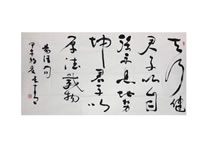 天行健
君子以自
強不息地勢
坤君子以
厚德載物